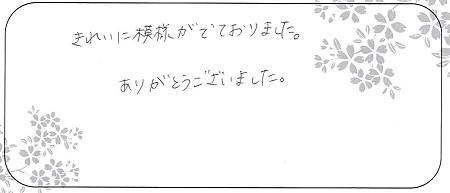 きれいに模様がでておりました。
ありがとうございました。